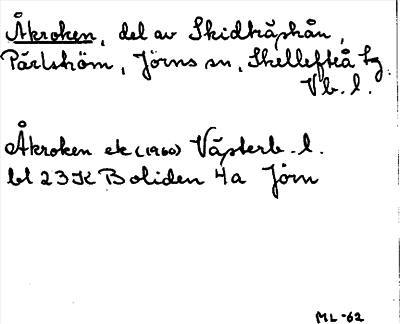 Åkroken, del av Skidträskån,
Pärlström, Jörns sn, Skellefteå tg
Vb. l.
Åkroken ek (1960) Västerb. l.
bl 23K Boliden 4a Jörn
ML-62